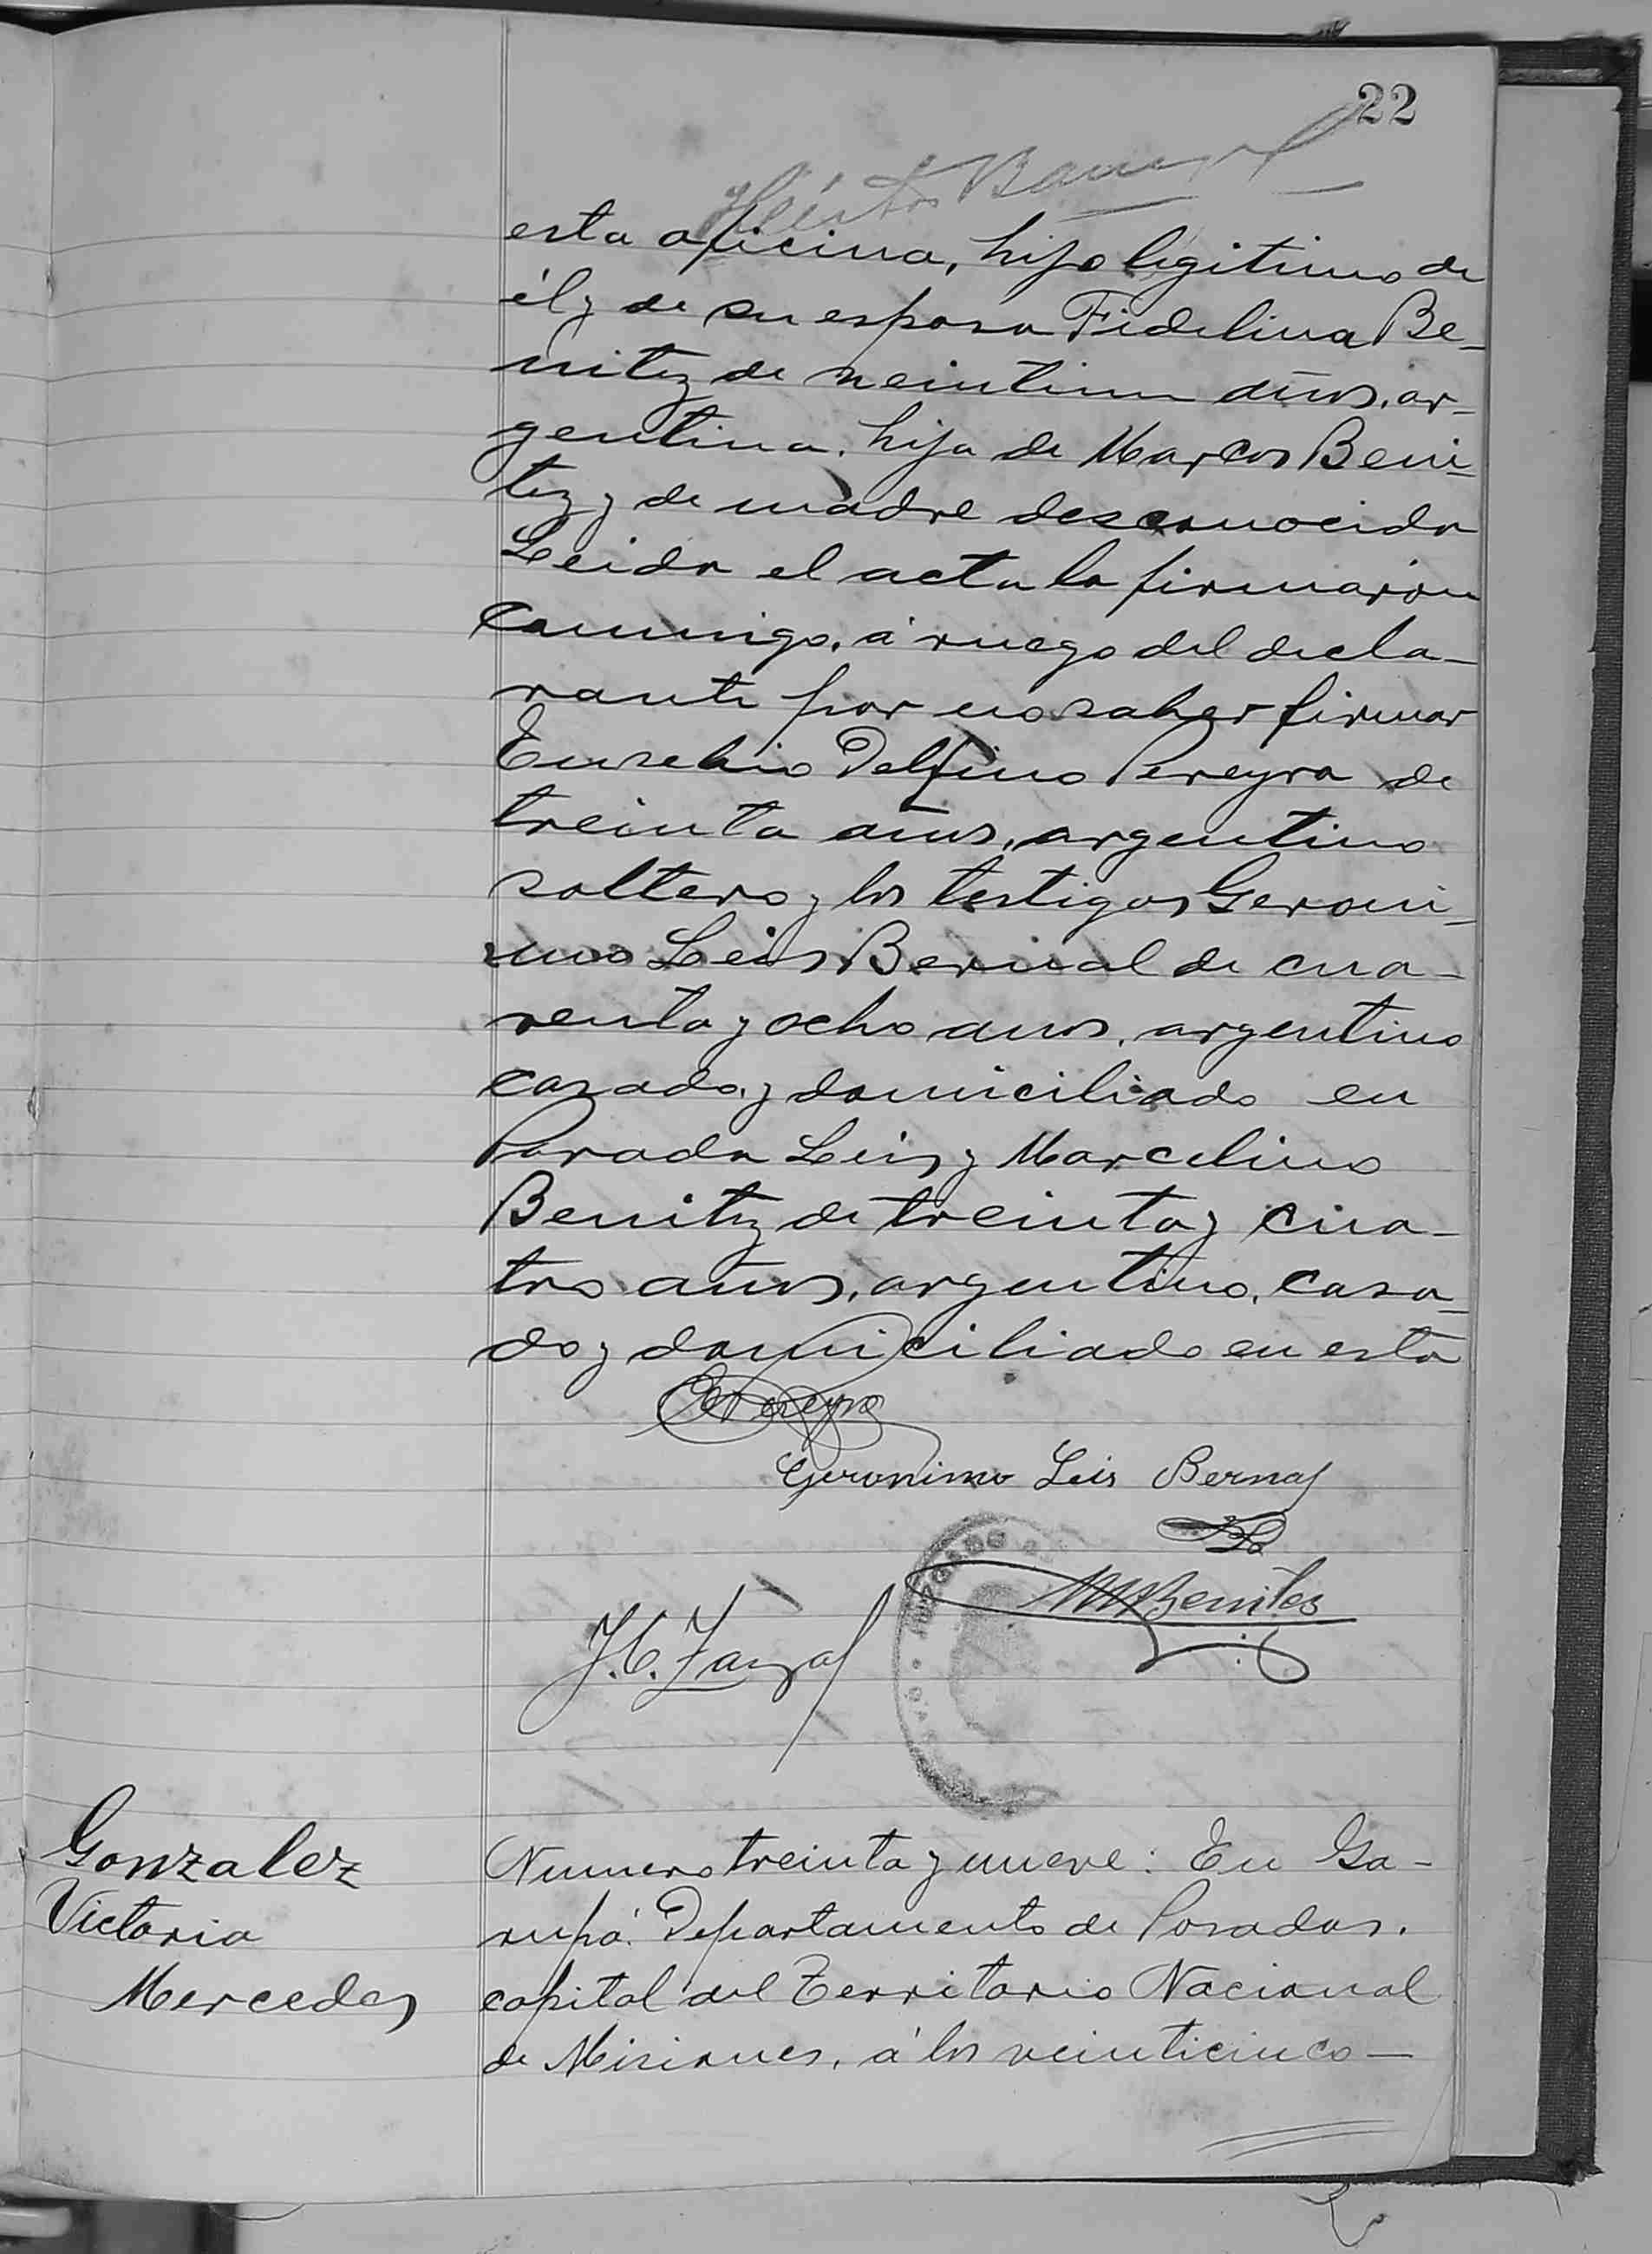 22
esta oficina, hijo legitimo de
él y de su esposa Fidelina Be-
nitez de veintiun años, ar-
gentina, hija de Marcos Beni-
tez y de madre desconocida
Leida el acta la firmaron
conmigo, á ruego del decla-
rante por no saber firmar
Eusebio Delfino Pereyra de
treinta años, argentino
soltero y los testigos Geroni-
mo Leis Bernal de cua-
renta y ocho años, argentino
casado, y domiciliado en
Parada Leis y Marcelino
Benitez de treinta y cua-
tro años, argentino, casa-
do y domiciliado en esta
EDPereyra
Geronimo Leis Bernal
MBenitez
J.C.
JUZGADO
Gonzalez
Victoria
Mercedes
Numero treinta y nueve: En Ga-
rupá. Departamento de Posadas,
capital del Territorio Nacional
de Misiones, á los veinticinco—